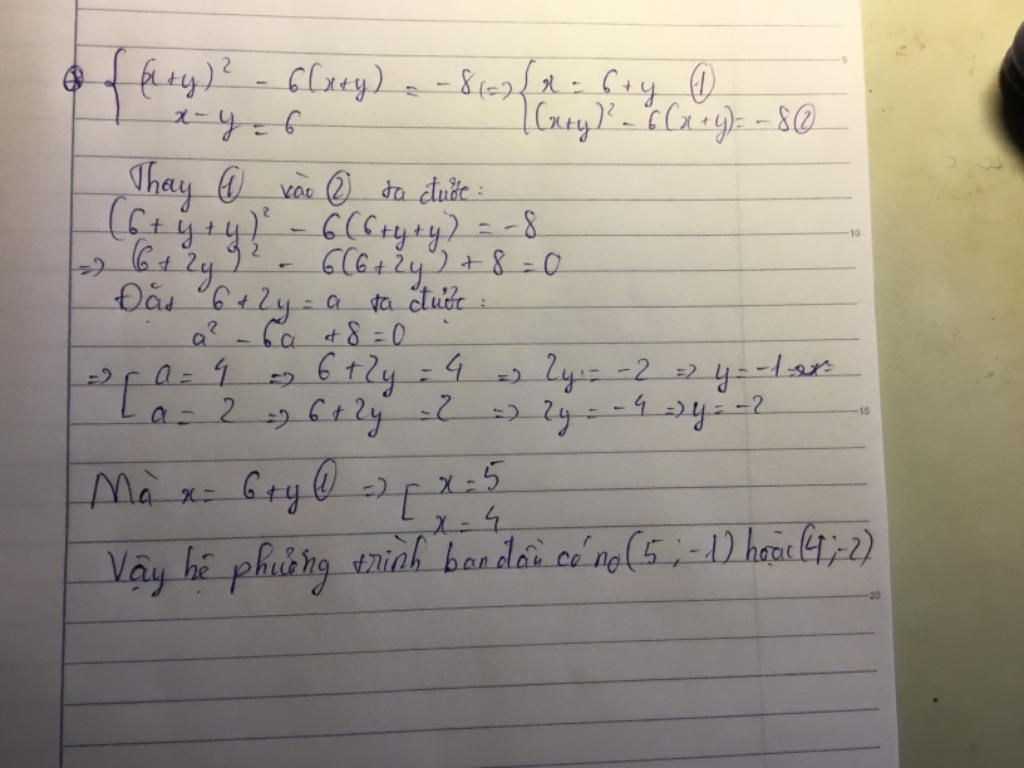 ⊛ { (x+y)² - 6(x+y) = -8 (=> { x = 6+y ①
x-y = 6 (x+y)² - 6(x+y) = -8 ②
Thay ① vào ② ta được:
(6+y+y)² - 6(6+y+y) = -8
=> (6+2y)² - 6(6+2y) + 8 = 0
Đặt 6+2y = a ta được:
a² - 6a + 8 = 0
=> [ a = 4 => 6+2y = 4 => 2y = -2 => y = -1
a = 2 => 6+2y = 2 => 2y = -4 => y = -2
Mà x = 6+y ① => [ x = 5
x = 4
Vậy hệ phương trình ban đầu có no (5; -1) hoặc (4; -2)
5
10
15
20